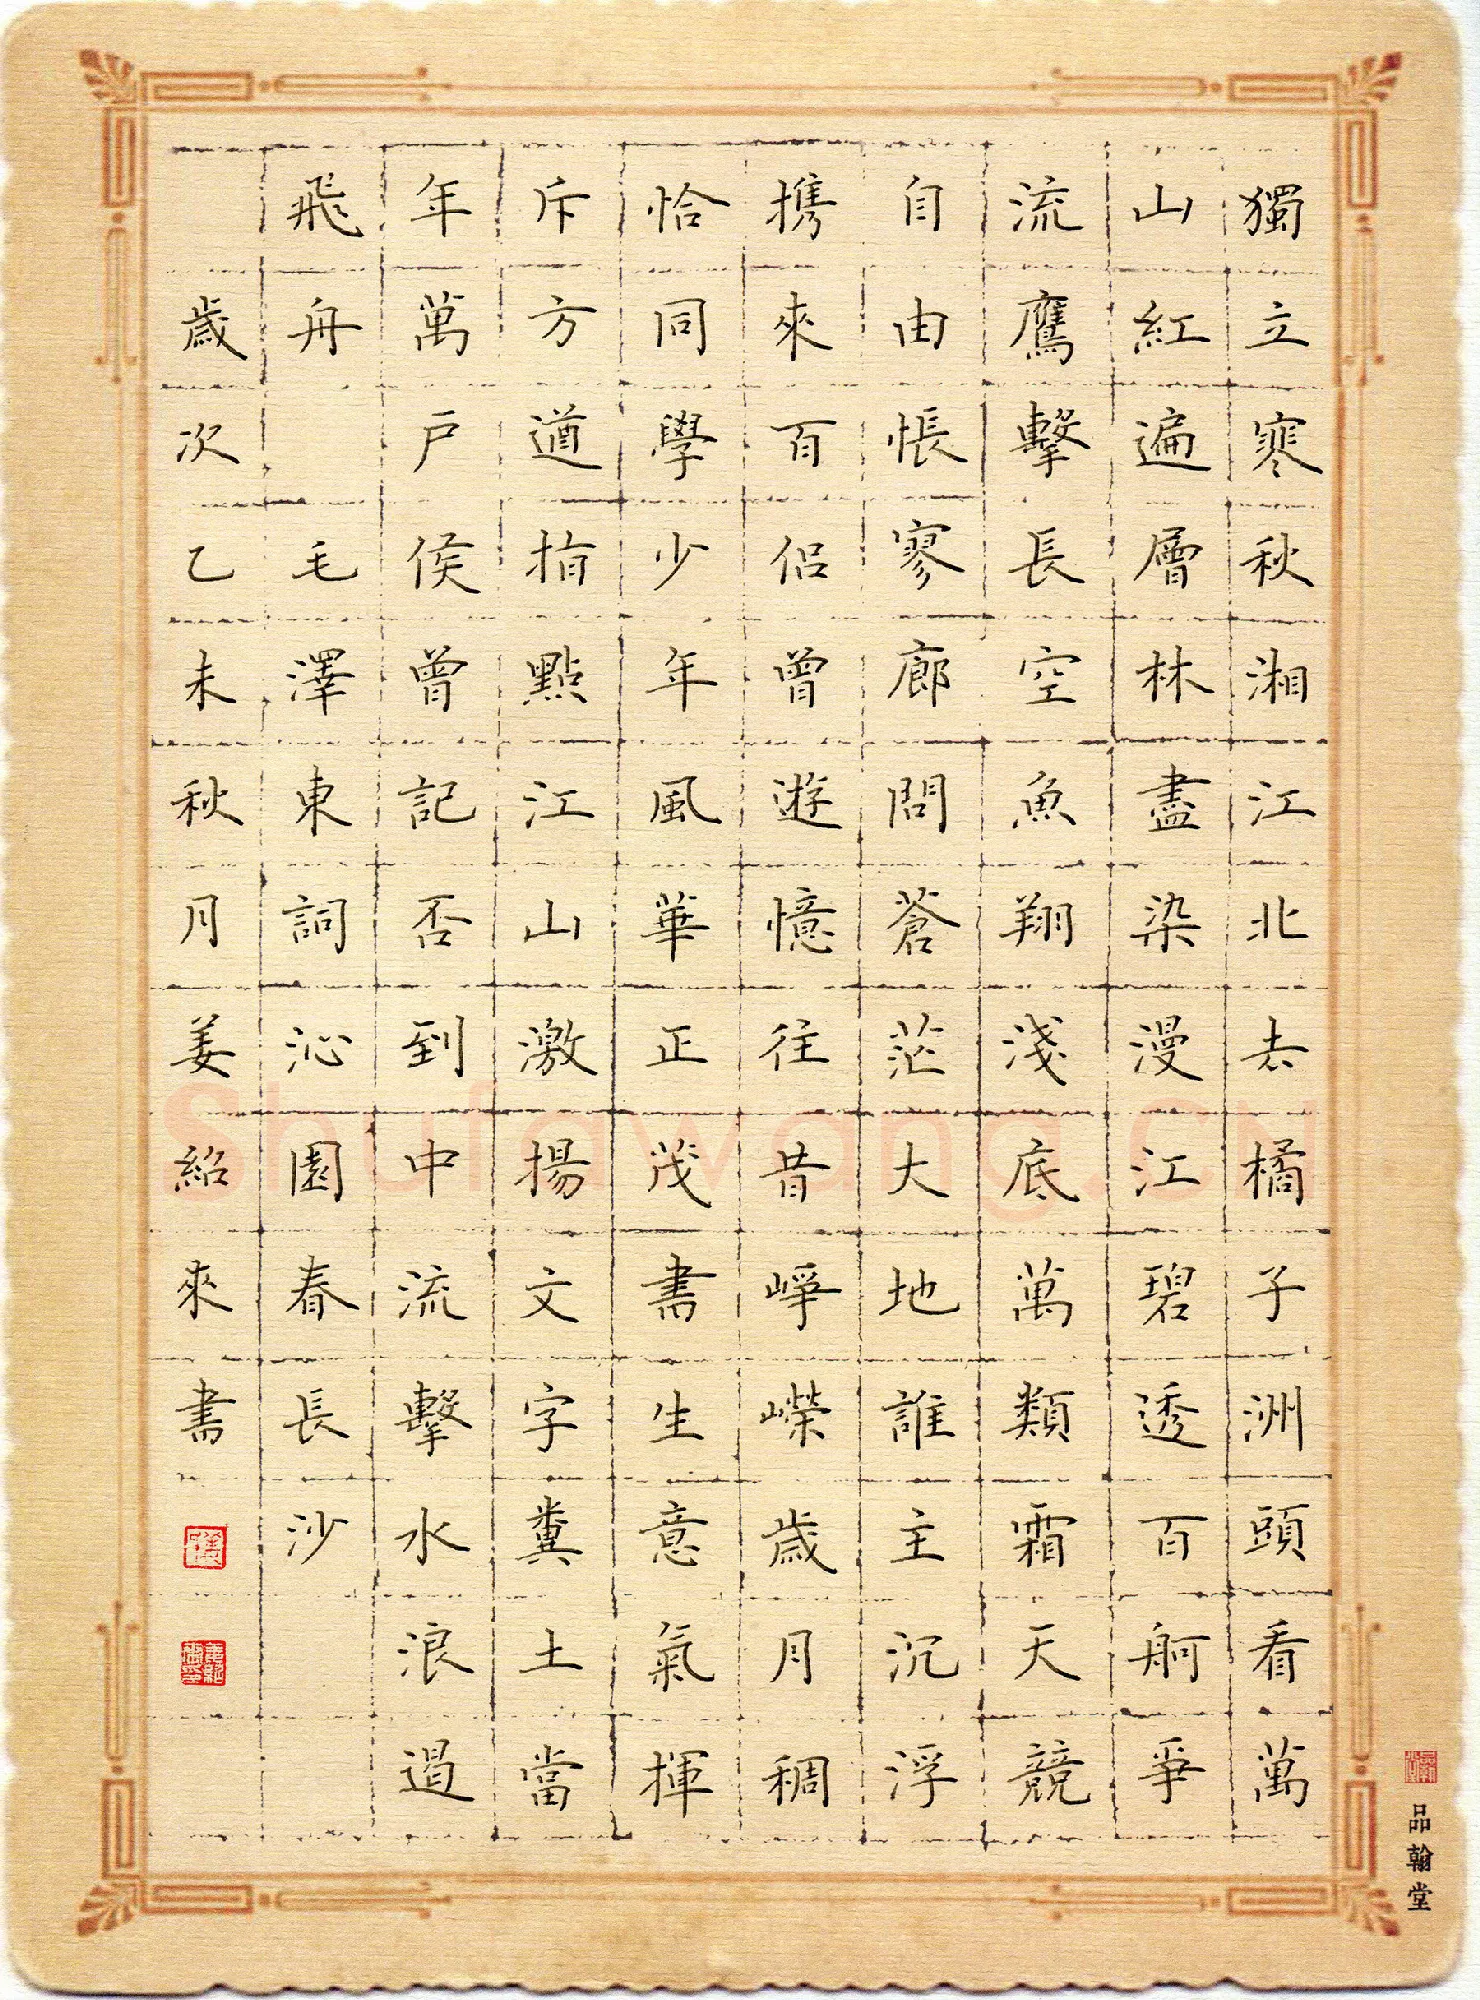 獨立寒秋湘江北去橘子洲頭看萬
山紅遍層林盡染漫江碧透百舸爭
流鷹擊長空魚翔淺底萬類霜天競
自由悵寥廓問蒼茫大地誰主沉浮
携來百侣曾遊憶往昔崢嶸歲月稠
恰同學少年風華正茂書生意氣揮
斥方遒指點江山激揚文字糞土當
年萬户侯曾記否到中流擊水浪遏
飛舟 毛澤東詞沁園春長沙
歲次乙未秋月姜紹來書
品翰堂
Shufawang.CN